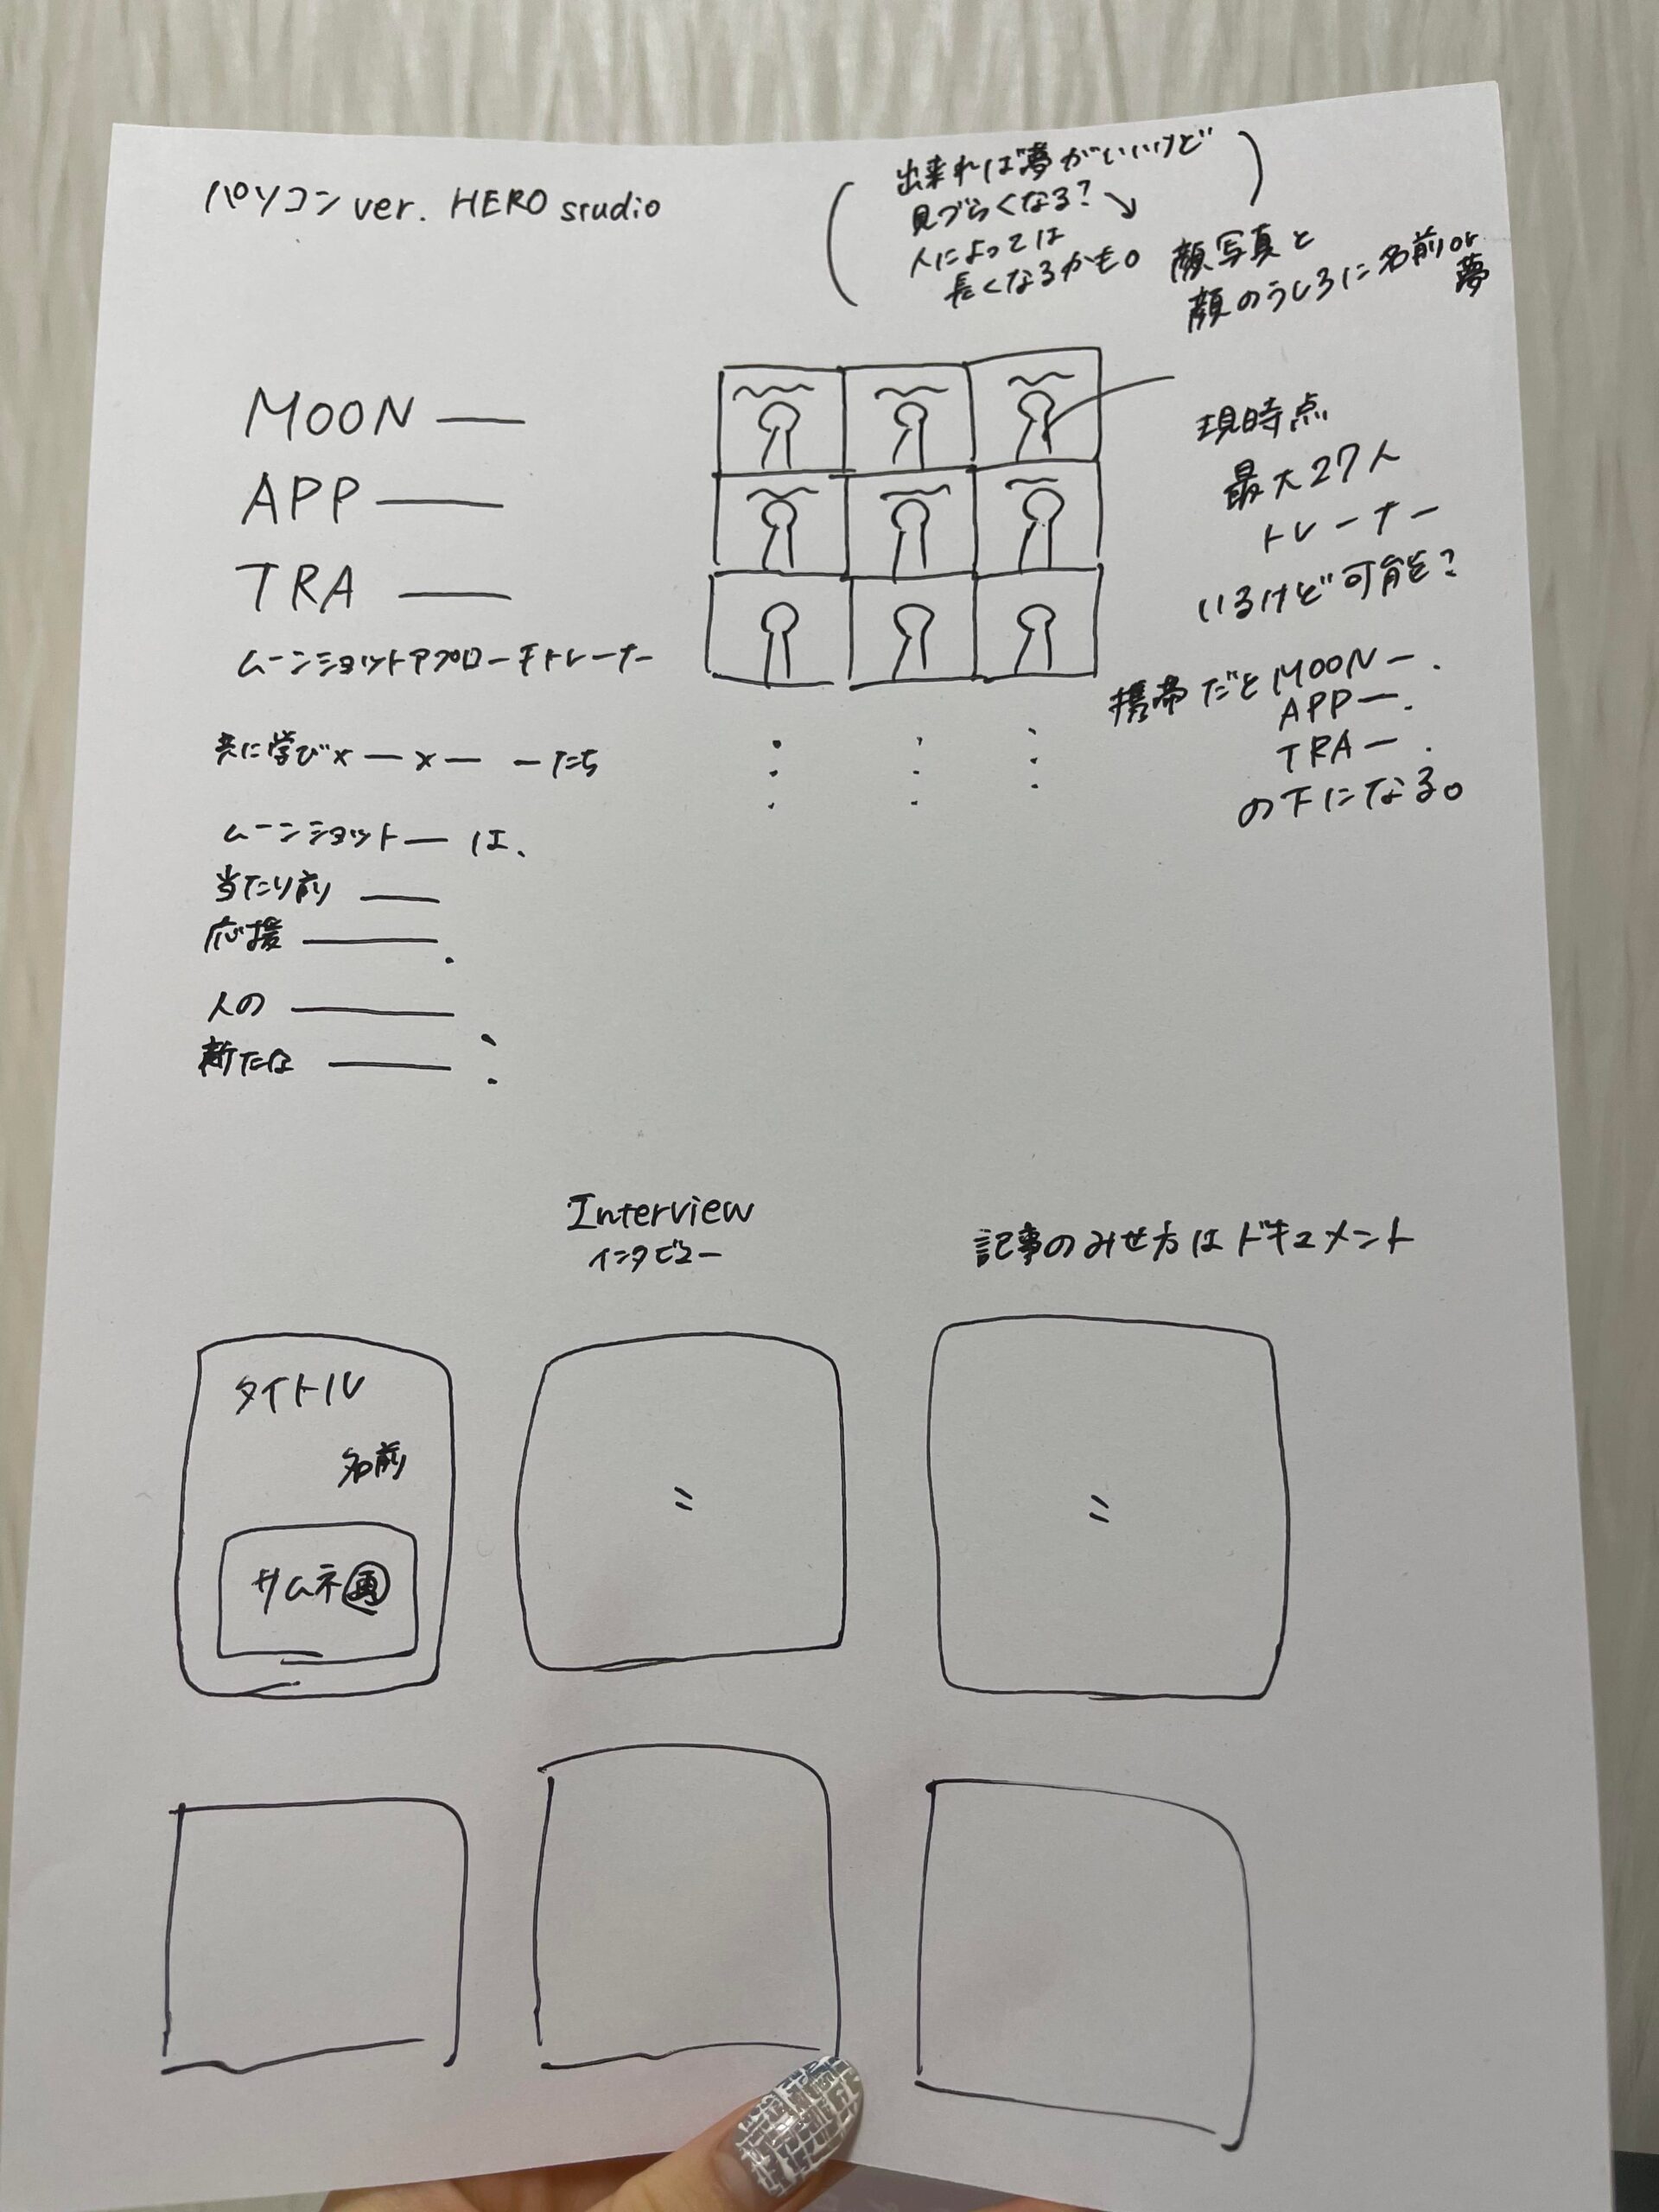 パソコン ver. HERO srudio
出来れば夢がいいけど
見づらくなる?
人によっては
長くなるかも。
顔写真と
顔のうしろに名前or
夢
MOON —
APP —
TRA —
ムーンショットアプローチトレーナー
共に学び× — × — — たち
ムーンショット — は、
当たり前 —
応援 — .
人の — 、
新たな — .
現時点
最大27人
トレーナー
いるけど可能?
携帯だと MOON — .
APP — .
TRA — .
の下になる。
Interview
インタビュー
記事のみせ方はドキュメント
タイトル
名前
サムネ画
〃
〃